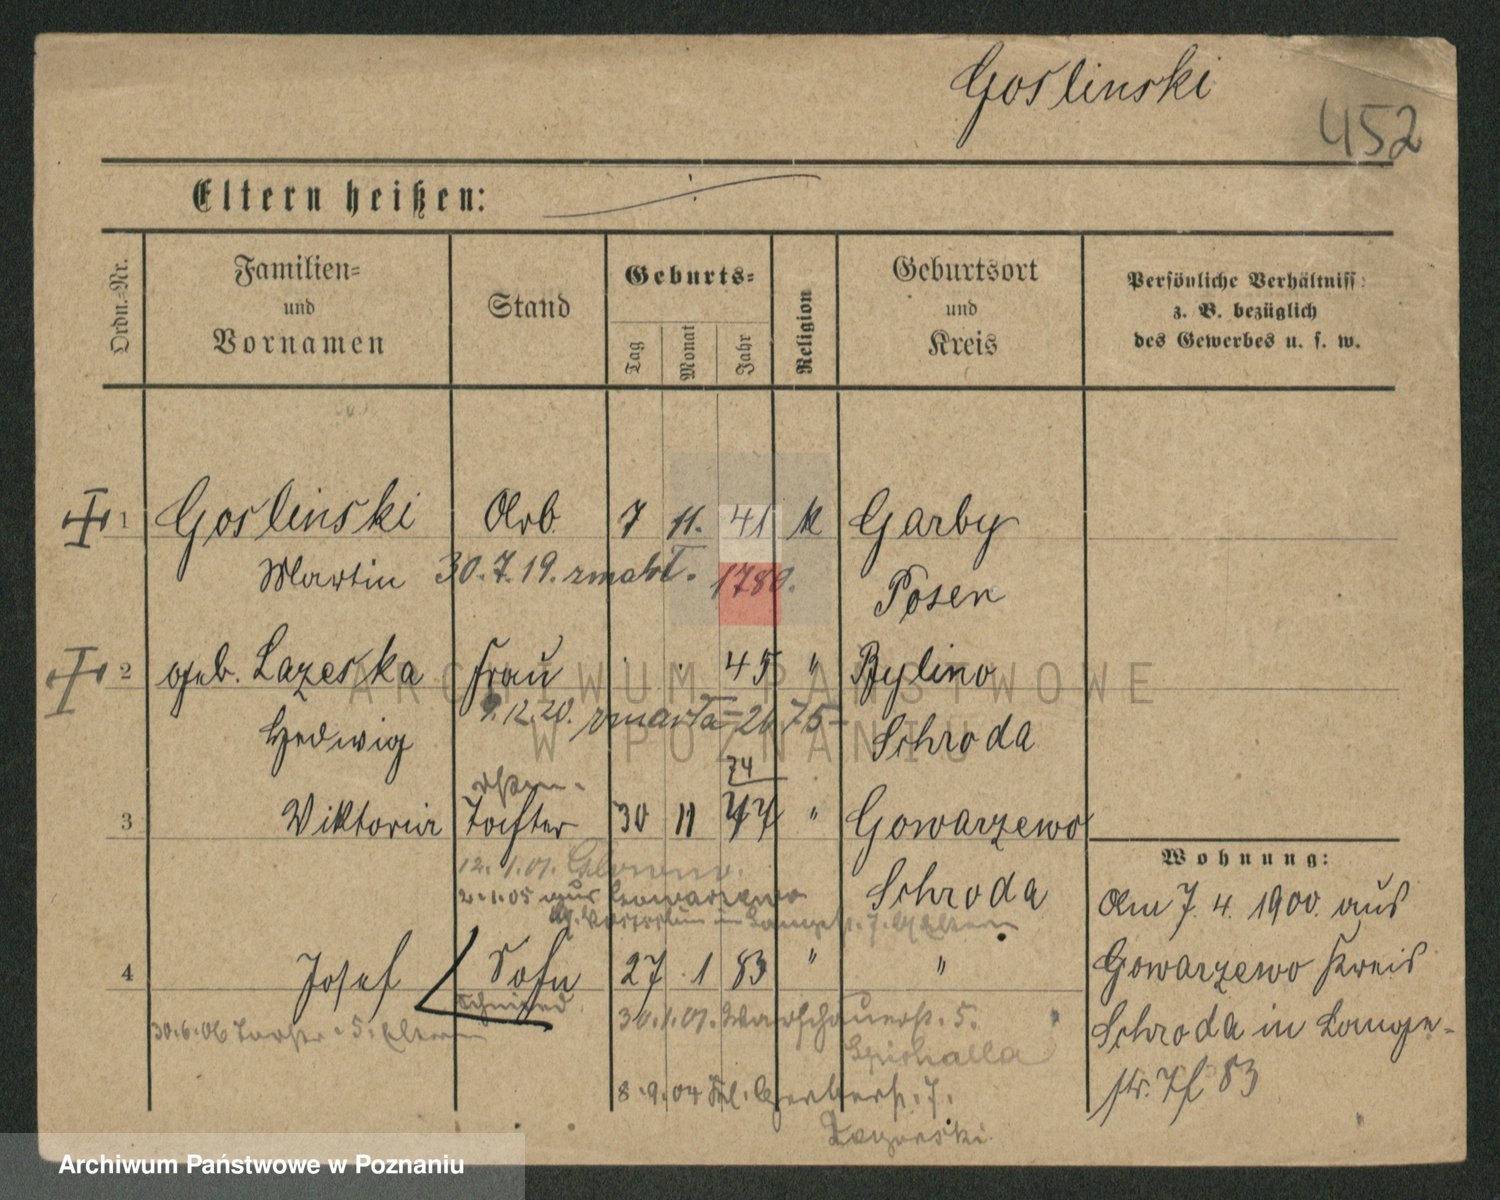 Goslinski
452
Eltern heißen:
Ordn.-Nr.
Familien- und Vornamen
Stand
Geburts-
Tag Monat Jahr
Religion
Geburtsort und Kreis
Persönliche Verhältniss
z. B. bezüglich
des Gewerbes u. s. w.
1 Goslinski Arb 7 11. 41 k Garby
Martin 30.7.19. zmarł. 1780. Posen
2 geb. Lazeska Frau 45 " Bylino
9.12.20. zmarła = 26 75 =
Hedwig Schroda
74
3 Viktoria Tochter 30 11 77 " Gowarzewo
12.1.01.
2.1.05 aus Gowarzewo
Schroda
4 Josef Sohn 27 1 83 " "
Schmied
30.6.06 5. Eltern
30.1.01. Warschauerst. 5.
Spichalla
8.9.04 Kl. Gerberst. 7.
Zagorski
Wohnung:
Am 7. 4. 1900. aus
Gowarzewo Kreis
Schroda in Lange-
str. 7 83
ARCHIWUM PAŃSTWOWE
W POZNANIU
Archiwum Państwowe w Poznaniu